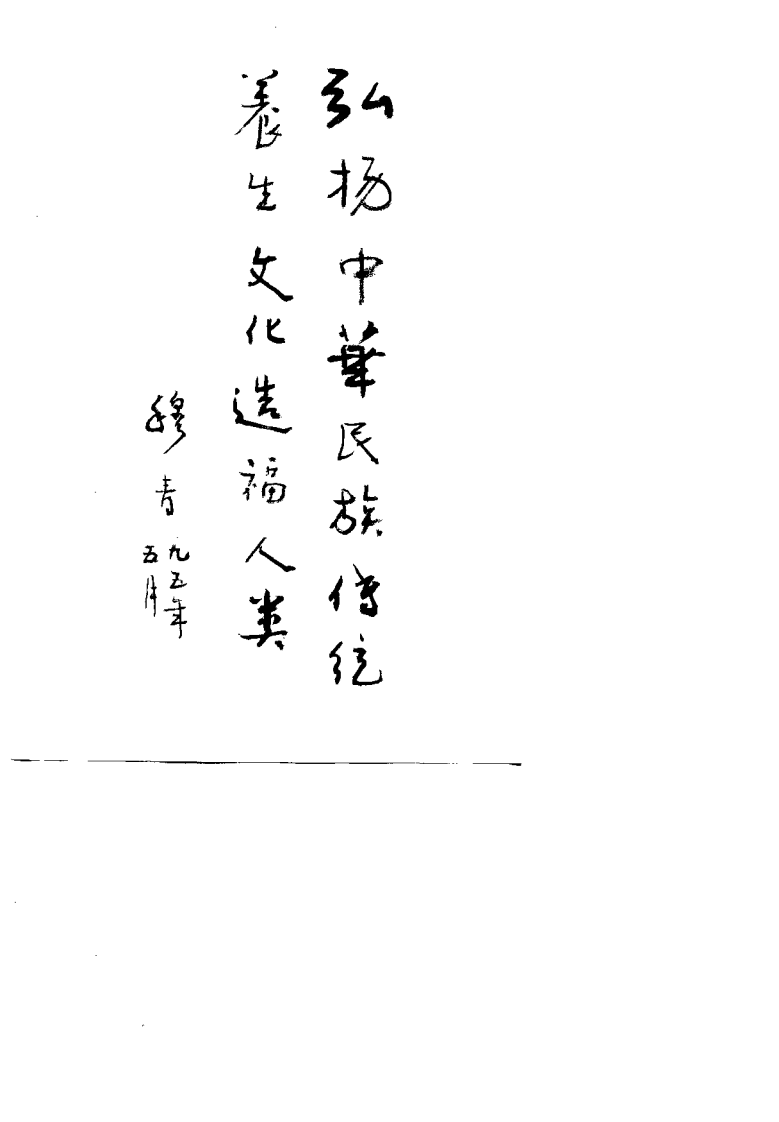 弘扬中華民族傳統
養生文化造福人类
穆青
九五年
五月